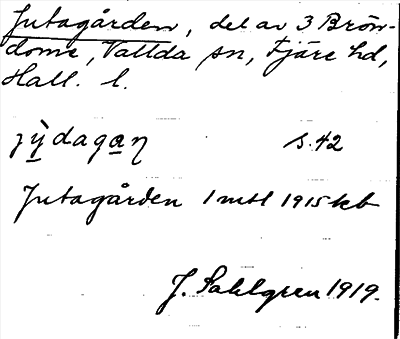 Jutagården, del av 3 Bröndome, Vallda sn, Fjäre hd,
Hall. l.
jỳdagaɳ s. 42
Jutagården 1 mtl 1915 kb
J. Sahlgren 1919.